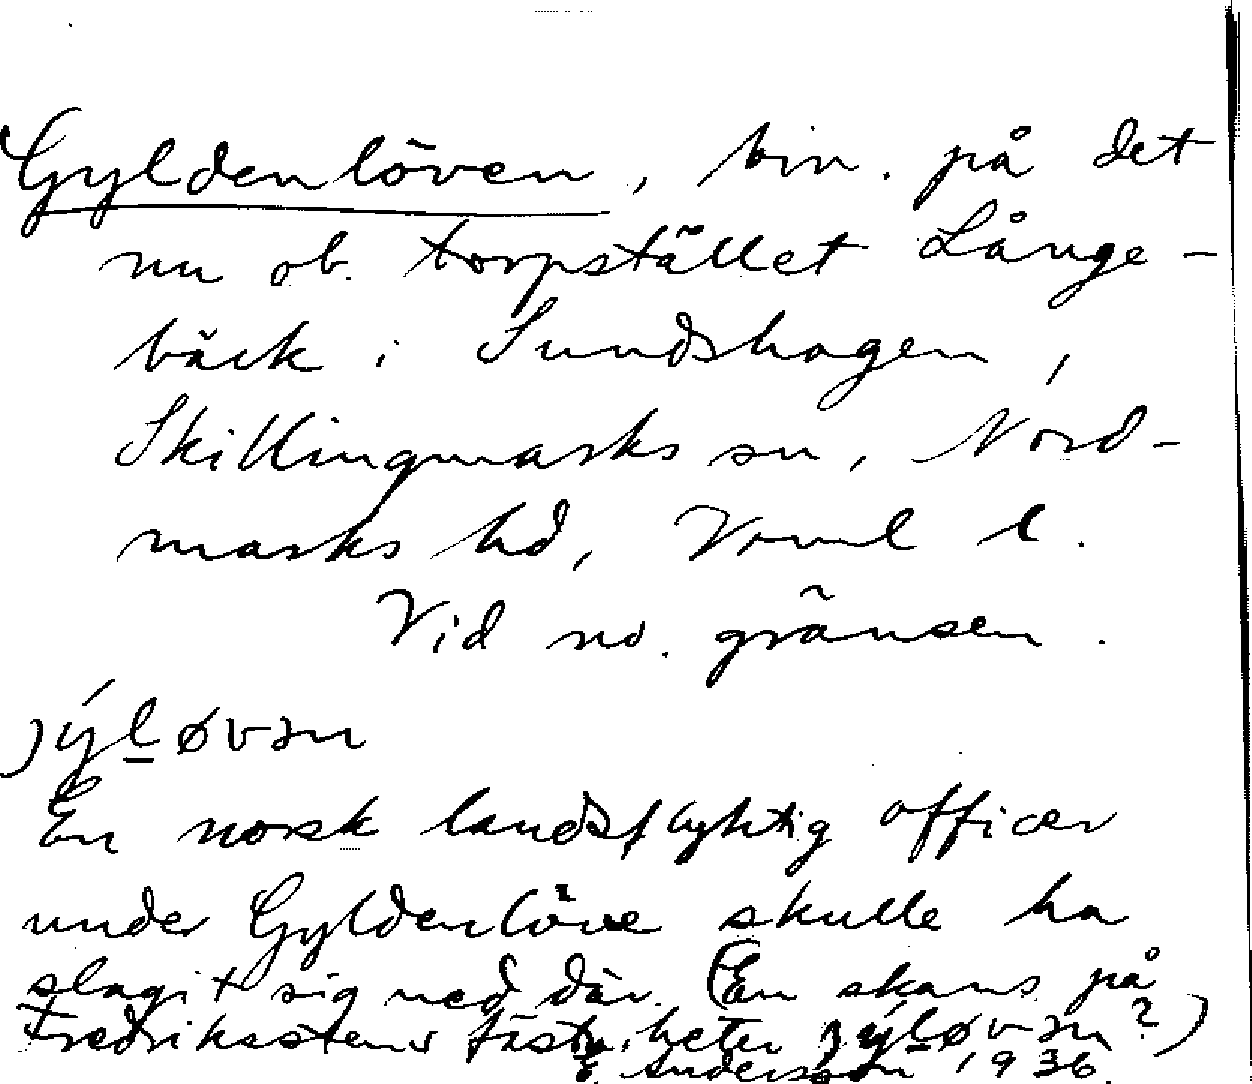 Gyldenlöven, bin. på det
nu ob. torpstället Långe-
bäck i Sundshagen,
Skillingmarks sn, Nord-
marks hd, Värml l.
Vid no. gränsen.
jýl̲øvən
En norsk landsflyktig officer
under Gyldenlöve skulle ha
slagit sig ned där. (En skans på
Fredrikstens fästn. heter jýl̲øvən?)
E. Andersson 1936.